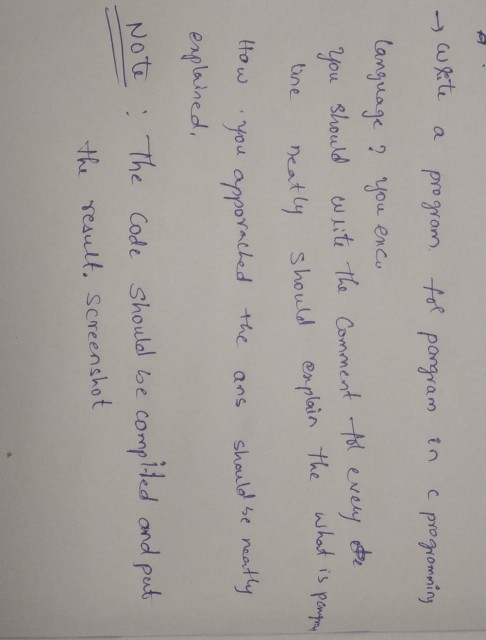 → write a program for pangram in c programming
language? you enc.
you should write the comment for every
line neatly should explain the what is pangram
How you apporached the ans should be neatly
explained.
Note : The code should be compiled and put
the result. screenshot